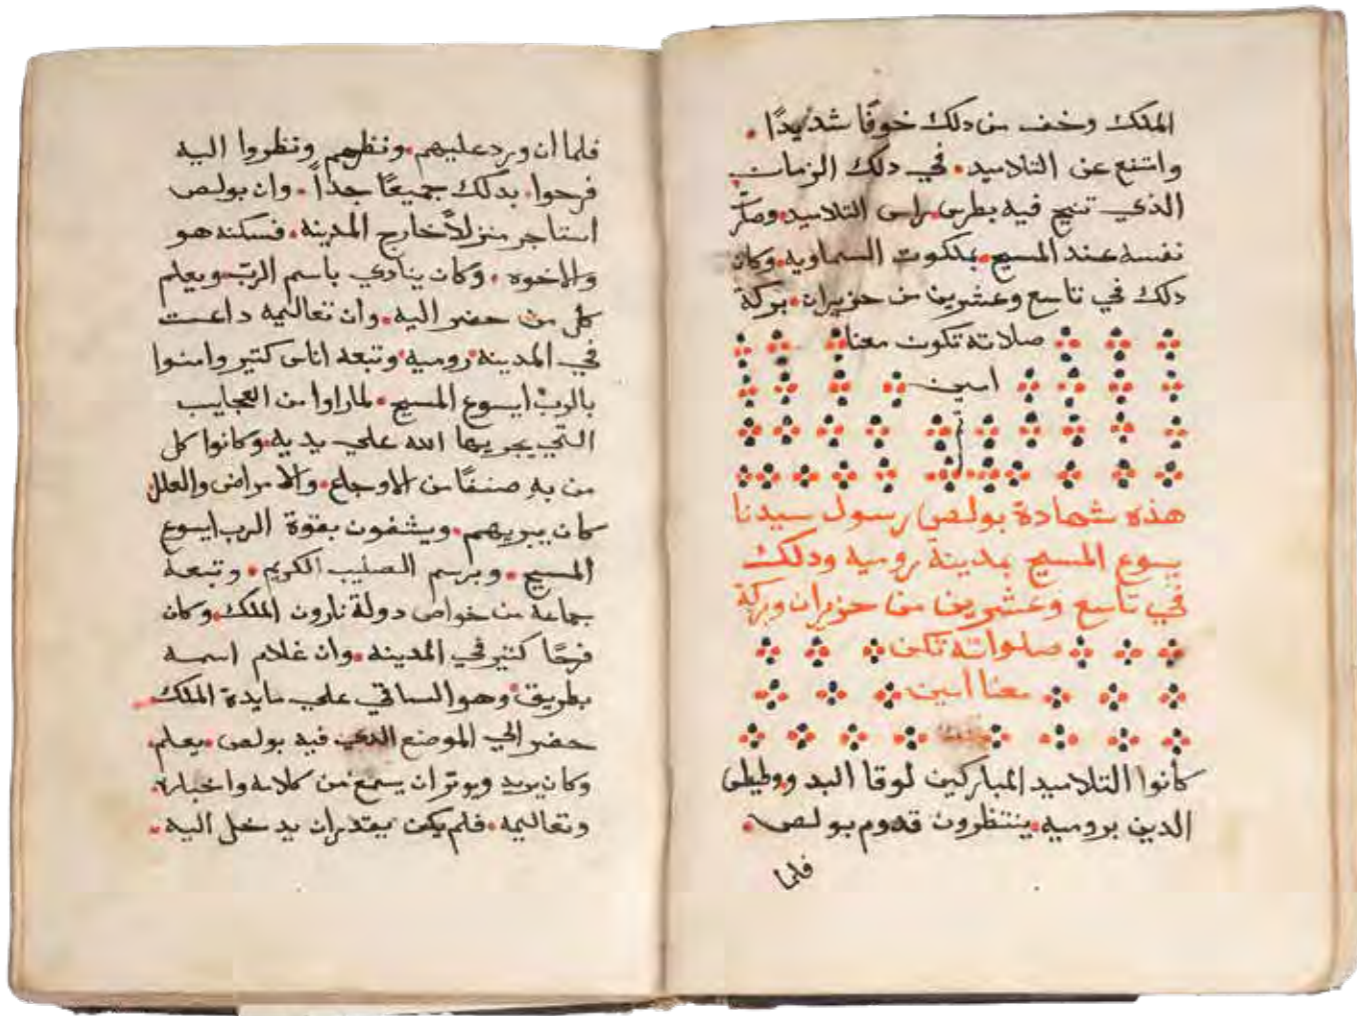 الملك وخف من دلك خوفًا شديدًا.
وامتنع عن التلاميد. في دلك الزمان
الذي تنيح فيه بطرس. راس التلاميد. وصارت
نفسه عند المسيح. بملكوت السماويه. وكان
دلك في تاسع وعشرين من حزيران. بركة
صلاته تكون معنا
امين
هذه شهادة بولص رسول سيدنا
يسوع المسيح بمدينة روميه ودلك
في تاسع وعشرين من حزيران وبركة
صلواته تكن
معنا امين
كانوا التلاميد المباركين لوقا البد ووطيطس
الدين بروميه. ينتظرون قدوم بولص.
فلما
فلما ان ورد عليهم. ونظرهم ونظروا اليه
فرحوا. بدلك جميعًا جداً. وان بولص
استاجر منزلاً خارج المدينه. فسكنه هو
والاخوه. وكان ينادي باسم الرب. ويعلم
كل من حضر اليه. وان تعاليمه داعت
في المدينه روميه وتبعه اناس كتير وامنوا
بالرب ايسوع المسيح. لماراوا من العجايب
التي يجريها الله علي يديه. وكانوا كل
من به صنفًا من الاوجاع. والامراض والعلل
كان يبريهم. ويشفون بقوة الرب ايسوع
المسيح. وبرسم الصليب الكريم. وتبعه
جماعة من خواص دولة نارون الملك. وكان
فرحًا كتير في المدينه. وان غلام اسمه
بطريق. وهو الساقي علي مايدة الملك.
حضر الي الموضع الدي فيه بولص. يعلم.
وكان يريد ويوتران يسمع من كلامه واخباره.
وتعاليمه. فلم يكن يقدر ان يدخل اليه.